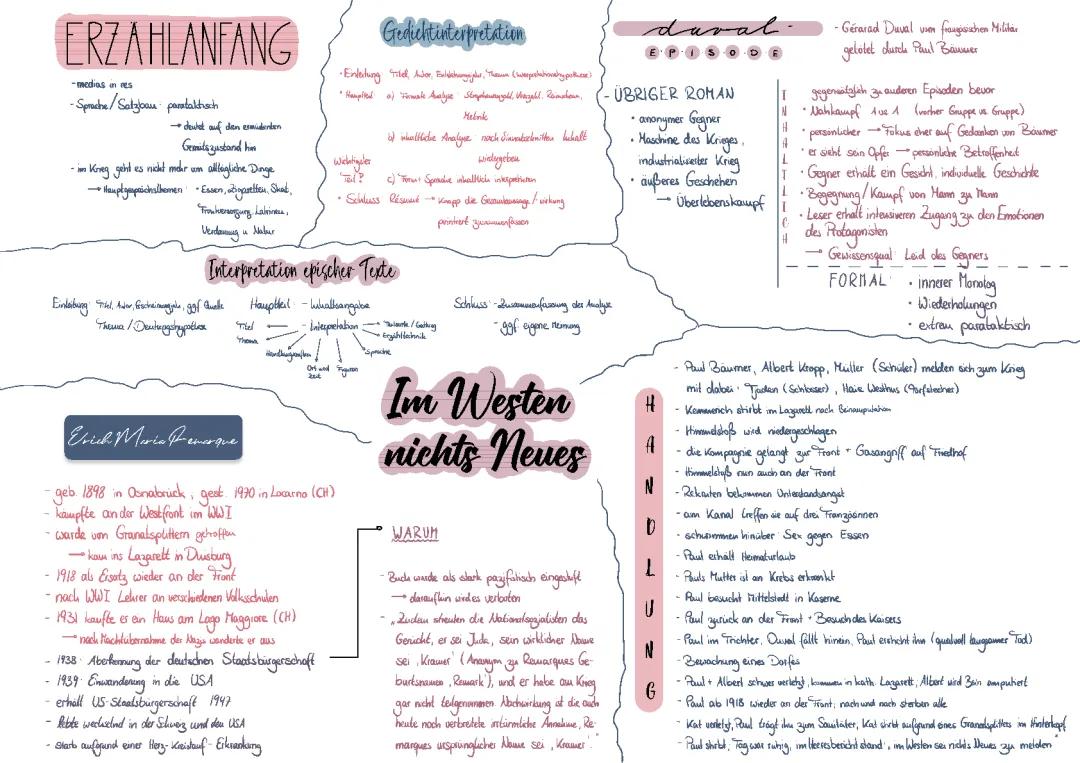 ERZÄHLANFANG
- medias in res
- Sprache/Satzbau: parataktisch
→ deutet auf den ermüdenden
Gemütszustand hin
- im Krieg geht es nicht mehr um alltägliche Dinge
→ Hauptgesprächsthemen: • Essen, Zigaretten, Skat,
Frontversorgung, Latrinen,
Verdauung u. Natur
Gedichtinterpretation
• Einleitung: Titel, Autor, Entstehungsjahr, Thema (Interpretationshypothese)
• Hauptteil: a) Formale Analyse: Strophenanzahl, Verszahl, Reimschema,
Metrik
b) inhaltliche Analyse: nach Sinnabschnitten Inhalt
wiedergeben
Wichtigster
Teil? c) Form + Sprache inhaltlich interpretieren
• Schluss: Résumé → Knapp die Gesamtaussage/wirkung
pointiert zusammenfassen
duval-
E·P·I·S·O·D·E
- Gérarad Duval vom französischen Militär
getötet durch Paul Bäumer
- ÜBRIGER ROMAN
• anonymer Gegner
• Maschine des Krieges,
industrialisierter Krieg
• äußeres Geschehen
→ Überlebenskampf
INHALTLICH
gegensätzlich zu anderen Episoden bevor
• Nahkampf 1 vs 1 (vorher Gruppe vs. Gruppe)
• persönlicher → Fokus eher auf Gedanken von Bäumer
• er sieht sein Opfer → persönliche Betroffenheit
• Gegner erhält ein Gesicht, individuelle Geschichte
• Begegnung/Kampf von Mann zu Mann
• Leser erhält intensiveren Zugang zu den Emotionen
des Protagonisten
→ Gewissensqual: Leid des Gegners
FORMAL: • innerer Monolog
• Wiederholungen
• extrem parataktisch
Interpretation epischer Texte
Einleitung: Titel, Autor, Erscheinungsjahr, ggf. Quelle
Thema/Deutungshypothese
Hauptteil: - Inhaltsangabe
- Interpretation
Titel
Thema
Handlungsaufbau
Ort und
Zeit
Figuren
Sprache
Erzähltechnik
Textsorte/Gattung
Schluss: - Zusammenfassung der Analyse
- ggf. eigene Meinung
Im Westen
nichts Neues
Erich Maria Remarque
- geb. 1898 in Osnabrück, gest. 1970 in Locarno (CH)
- kämpfte an der Westfront im WWI
- wurde von Granatsplittern getroffen
→ kam ins Lazarett in Duisburg
- 1918 als Ersatz wieder an der Front
- nach WWI Lehrer an verschiedenen Volksschulen
- 1931 kaufte er ein Haus am Lago Maggiore (CH)
→ nach Machtübernahme der Nazis wanderte er aus
- 1938: Aberkennung der deutschen Staatsbürgerschaft
- 1939: Einwanderung in die USA
- erhält US-Staatsbürgerschaft 1947
- lebte wechselnd in der Schweiz und den USA
- starb aufgrund einer Herz-Kreislauf-Erkrankung
WARUM
- Buch wurde als stark pazifistisch eingestuft
→ daraufhin wird es verboten
- „Zudem streuten die Nationalsozialisten das
Gerücht, er sei Jude, sein wirklicher Name
sei ‚Kramer' (Ananym zu Remarques Ge-
burtsnamen ‚Remark'), und er habe am Krieg
gar nicht teilgenommen. Nachwirkung ist die auch
heute noch verbreitete irrtümliche Annahme, Re-
marques ursprünglicher Name sei ‚Kramer'."
HANDLUNG
- Paul Bäumer, Albert Kropp, Müller (Schüler) melden sich zum Krieg
mit dabei: Tjaden (Schlosser), Haie Westhus (Torfstecher)
- Kemmerich stirbt im Lazarett nach Beinamputation
- Himmelstoß wird niedergeschlagen
- die Kompagnie gelangt zur Front + Gasangriff auf Friedhof
- Himmelstoß nun auch an der Front
- Rekruten bekommen Unterstandsangst
- am Kanal treffen sie auf drei Französinnen
- schwimmen hinüber: Sex gegen Essen
- Paul erhält Heimaturlaub
- Pauls Mutter ist an Krebs erkrankt
- Paul besucht Mittelstedt in Kaserne
- Paul zurück an der Front + Besuch des Kaisers
- Paul im Trichter, Duval fällt hinein, Paul ersticht ihn (qualvoll langsamer Tod)
- Bewachung eines Dorfes
- Paul + Albert schwer verletzt, kommen in kath. Lazarett, Albert wird Bein amputiert
- Paul ab 1918 wieder an der Front; nach und nach sterben alle
- Kat verletzt, Paul trägt ihn zum Sanitäter, Kat stirbt aufgrund eines Granatsplitters im Hinterkopf
- Paul stirbt, Tag war ruhig, im Heeresbericht stand, im Westen sei nichts Neues zu melden